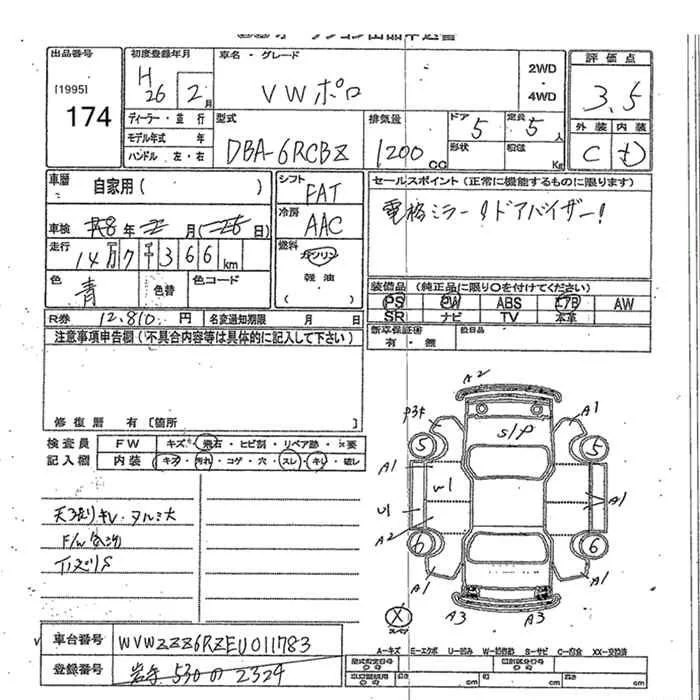 出品番号 初度登録年月 車名・グレード 評価点
[1995] H26年 2月 VWポロ 2WD 4WD 3.5
174
ディーラー・並行 型式 排気量 ドア 5 定員 5人 外装 内装
モデル年式 年 DBA-6RCBZ 1200cc 形状 積載 Kg C D
ハンドル 左・右
車歴 自家用( ) シフト FAT セールスポイント(正常に機能するものに限ります)
冷房 AAC 電格ミラー!ドアバイザー!
車検 年 月( 日)
走行 14万7千366km 燃料 ガソリン 軽油 ( )
色 青 色替 色コード
装備品(純正品に限り〇を付けてください)
PS PW ABS エアB AW
SR ナビ TV 本革
R券 12.810円 名変通知期限 月 日
新車保証書 有・無 欠品
注意事項申告欄(不具合内容等は具体的に記入して下さい)
修復歴 有[箇所 ]
検査員 FW キズ・飛石・ヒビ割・リペア跡・X要
記入欄 内装 キズ・汚れ・コゲ・穴・スレ・キレ・破レ
A2
A1
S/P
5 5
A1 W1 A1
U1
A2
6 6
A1 A1
A3 A3
X
スペア
車台番号 WVWZZZ6RZEU011783
登録番号 岩手 530 の 2324
A-キズ E-エクボ U-凹み W-補修跡 S-サビ C-腐食 XX-交換済
cm cm cm